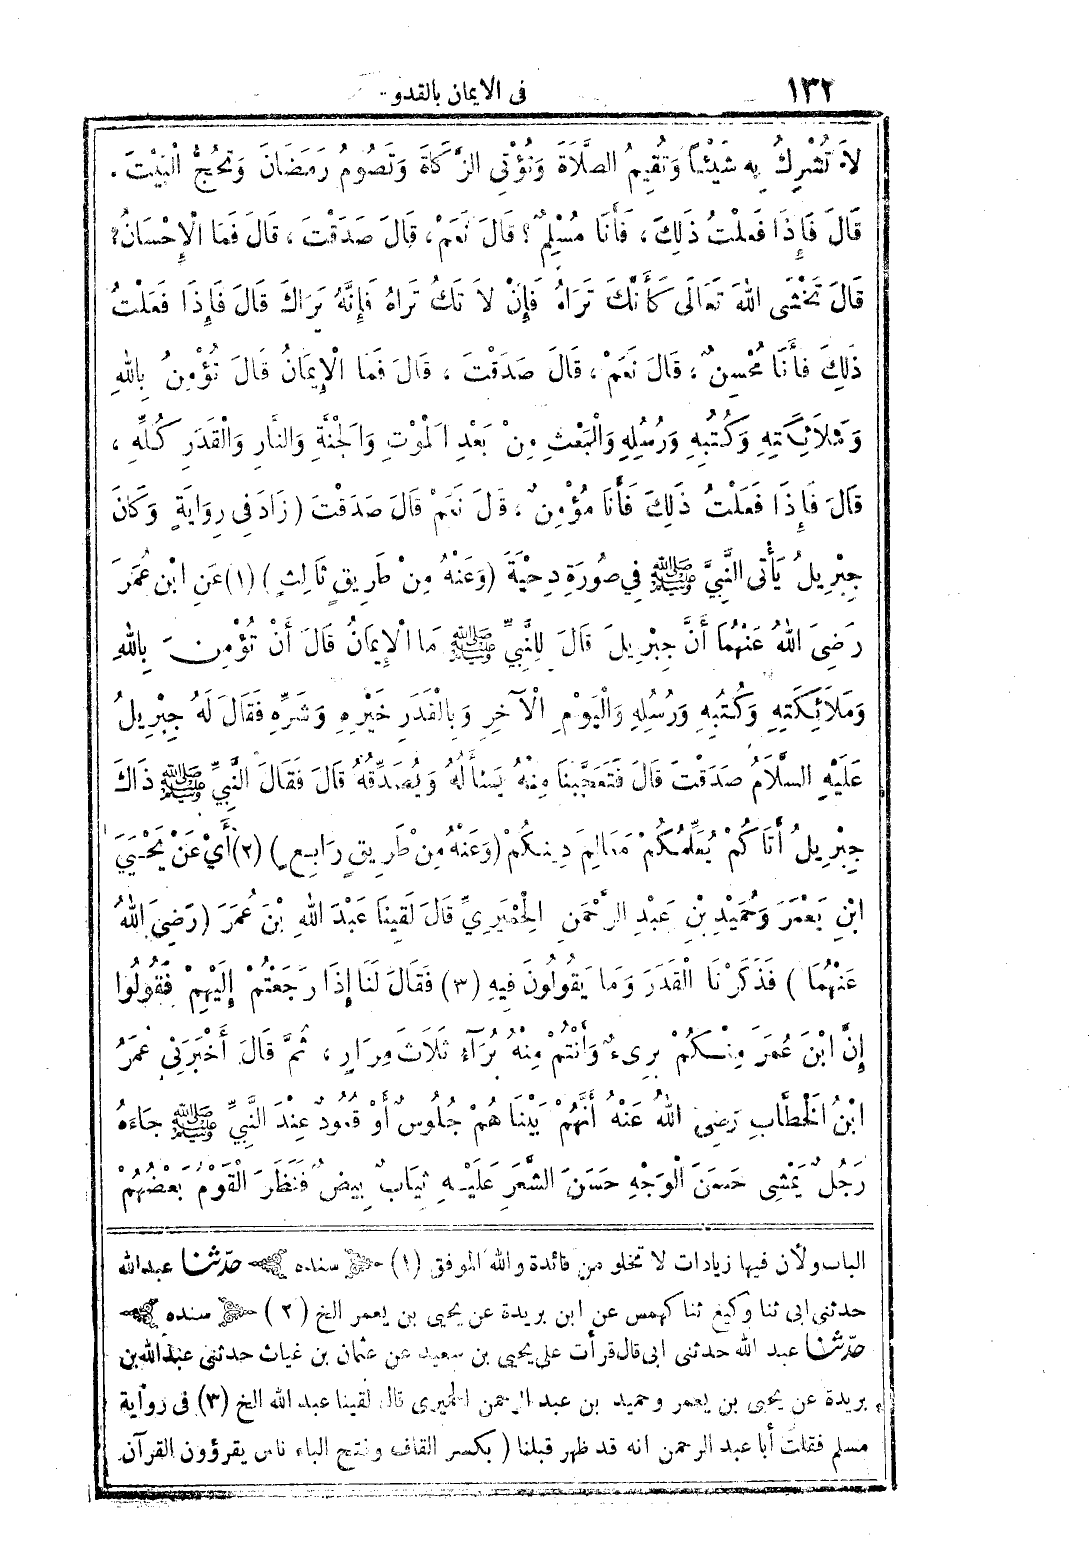 ١٣٢ فى الايمان بالقدر
لاَ تُشْرِكُ بِهِ شَيْئًا وَتُقِيمُ الصَّلاَةَ وَتُؤْتِى الزَّكَاةَ وَتَصُومُ رَمَضَانَ وَتَحُجُّ الْبَيْتَ .
قَالَ فَإِذَا فَعَلْتُ ذَلِكَ ، فَأَنَا مُسْلِمٌ ؟ قَالَ نَعَمْ ، قَالَ صَدَقْتَ ، قَالَ فَمَا الْإِحْسَانُ ؟
قَالَ تَخْشَى اللهَ تَعَالَى كَأَنَّكَ تَرَاهُ فَإِنْ لاَ تَكُ تَرَاهُ فَإِنَّهُ يَرَاكَ قَالَ فَإِذَا فَعَلْتُ
ذَلِكَ فَأَنَا مُحْسِنٌ ، قَالَ نَعَمْ ، قَالَ صَدَقْتَ ، قَالَ فَمَا الْإِيمَانُ قَالَ تُؤْمِنُ بِاللهِ
وَمَلَائِكَتِهِ وَكُتُبِهِ وَرُسُلِهِ وَالْبَعْثِ مِنْ بَعْدِ الْمَوْتِ وَالْجَنَّةِ وَالنَّارِ وَالْقَدَرِ كُلِّهِ ،
قَالَ فَإِذَا فَعَلْتُ ذَلِكَ فَأَنَا مُؤْمِنٌ ، قَالَ نَعَمْ قَالَ صَدَقْتَ (زَادَ فِى رِوَايَةٍ وَكَانَ
جِبْرِيلُ يَأْتِى النَّبِيَّ ﷺ فِي صُورَةِ دِحْيَةَ (وَعَنْهُ مِنْ طَرِيقٍ ثَالِثٍ ) (١) عَنِ ابْنِ عُمَرَ
رَضِيَ اللهُ عَنْهُمَا أَنَّ جِبْرِيلَ قَالَ لِلنَّبِيِّ ﷺ مَا الْإِيمَانُ قَالَ أَنْ تُؤْمِنَ بِاللهِ
وَمَلَائِكَتِهِ وَكُتُبِهِ وَرُسُلِهِ وَالْيَوْمِ الْآخِرِ وَبِالْقَدَرِ خَيْرِهِ وَشَرِّهِ فَقَالَ لَهُ جِبْرِيلُ
عَلَيْهِ السَّلَامُ صَدَقْتَ قَالَ فَتَعَجَّبْنَا مِنْهُ يَسْأَلُهُ وَيُصَدِّقُهُ قَالَ فَقَالَ النَّبِيُّ ﷺ ذَاكَ
جِبْرِيلُ أَتَاكُمْ يُعَلِّمُكُمْ مَعَالِمَ دِينِكُمْ (وَعَنْهُ مِنْ طَرِيقٍ رَابِعٍ) (٢) أَيْ عَنْ يَحْيَى
ابْنِ يَعْمَرَ وَحُمَيْدِ بْنِ عَبْدِ الرَّحْمَنِ الْحِمْيَرِيِّ قَالَ لَقِينَا عَبْدَ اللهِ بْنَ عُمَرَ (رَضِيَ اللهُ
عَنْهُمَا ) فَذَكَرْنَا الْقَدَرَ وَمَا يَقُولُونَ فِيهِ (٣) فَقَالَ لَنَا إِذَا رَجَعْتُمْ إِلَيْهِمْ فَقُولُوا
إِنَّ ابْنَ عُمَرَ مِنْكُمْ بَرِىءٌ وَأَنْتُمْ مِنْهُ بُرَآءُ ثَلَاثَ مِرَارٍ ، ثُمَّ قَالَ أَخْبَرَنِي عُمَرُ
ابْنُ الْخَطَّابِ رَضِيَ اللهُ عَنْهُ أَنَّهُمْ بَيْنَا هُمْ جُلُوسٌ أَوْ قُعُودٌ عِنْدَ النَّبِيِّ ﷺ جَاءَهُ
رَجُلٌ يَمْشِى حَسَنَ الْوَجْهِ حَسَنَ الشَّعَرَ عَلَيْهِ ثِيَابٌ بِيضٌ فَنَظَرَ الْقَوْمُ بَعْضُهُمْ
الباب ولأن فيها زيادات لا تخلو من فائدة والله الموفق (١) سنده حدّثنا عبد الله
حدثنى ابى ثنا وكيع ثنا كهمس عن ابن بريدة عن يحيى بن يعمر الخ (٢) سنده
حدّثنا عبد الله حدثنى ابى قال قرأت على يحيى بن سعيد عن عثمان بن غياث حدثنى عبد الله بن
بريدة عن يحيى بن يعمر وحميد بن عبد الرحمن الحميرى قال لقينا عبد الله الخ (٣) فى رواية
مسلم فقلت أبا عبد الرحمن انه قد ظهر قبلنا ( بكسر القاف وفتح الباء ناس يقرؤون القرآن